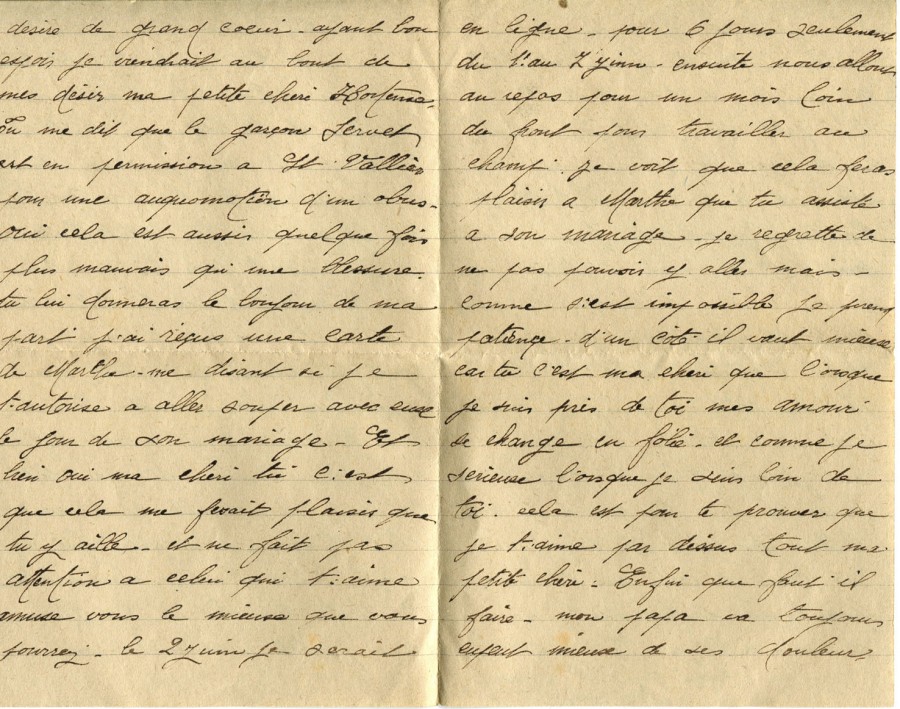 desire de grand coeur - ayant bon
espoir je viendrait au bout de
mes désir ma petite cheri Hortense.
Tu me dit que le garçon Servet
est en permission a St Vallier
pour une d'un obus-
oui cela est aussis quelque fois
plus mauvais qui une blessure.
tu lui donneras le bonjour de ma
part j'ai reçus une carte
de Marthe - me disant si je
t'autorise a aller souper avec eux
le jour de son mariage - Et
bien oui ma cheri tu c'est
que cela me ferait plaisir que
tu y aille - et ne fait pas
attention a celui qui t'aime
amuse vous le mieuse que vous
pourrez - le 2 juin je serait
en ligne - pour 6 jours seulement
du 1er au 7 juin - ensuite nous allons
au repos pour un mois loin
du front pour travailler au
champ. je voit que cela feras
plaisir a Marthe que tu assiste
a son mariage - je regrette de
ne pas pouvoir y aller mais -
comme s'est impossible je prend
patience - d'un côté il vaut mieuse
car tu c'est ma cheri que l'orsque
je suis près de toi mes amour
se change en folie - et comme je
serieuse l'orsque je suis loin de
toi. cela est pour te prouver que
je t'aime par dessus tout ma
petite cheri - Enfin que faut il
faire - mon papa va toujours
mieuse de ses douleur